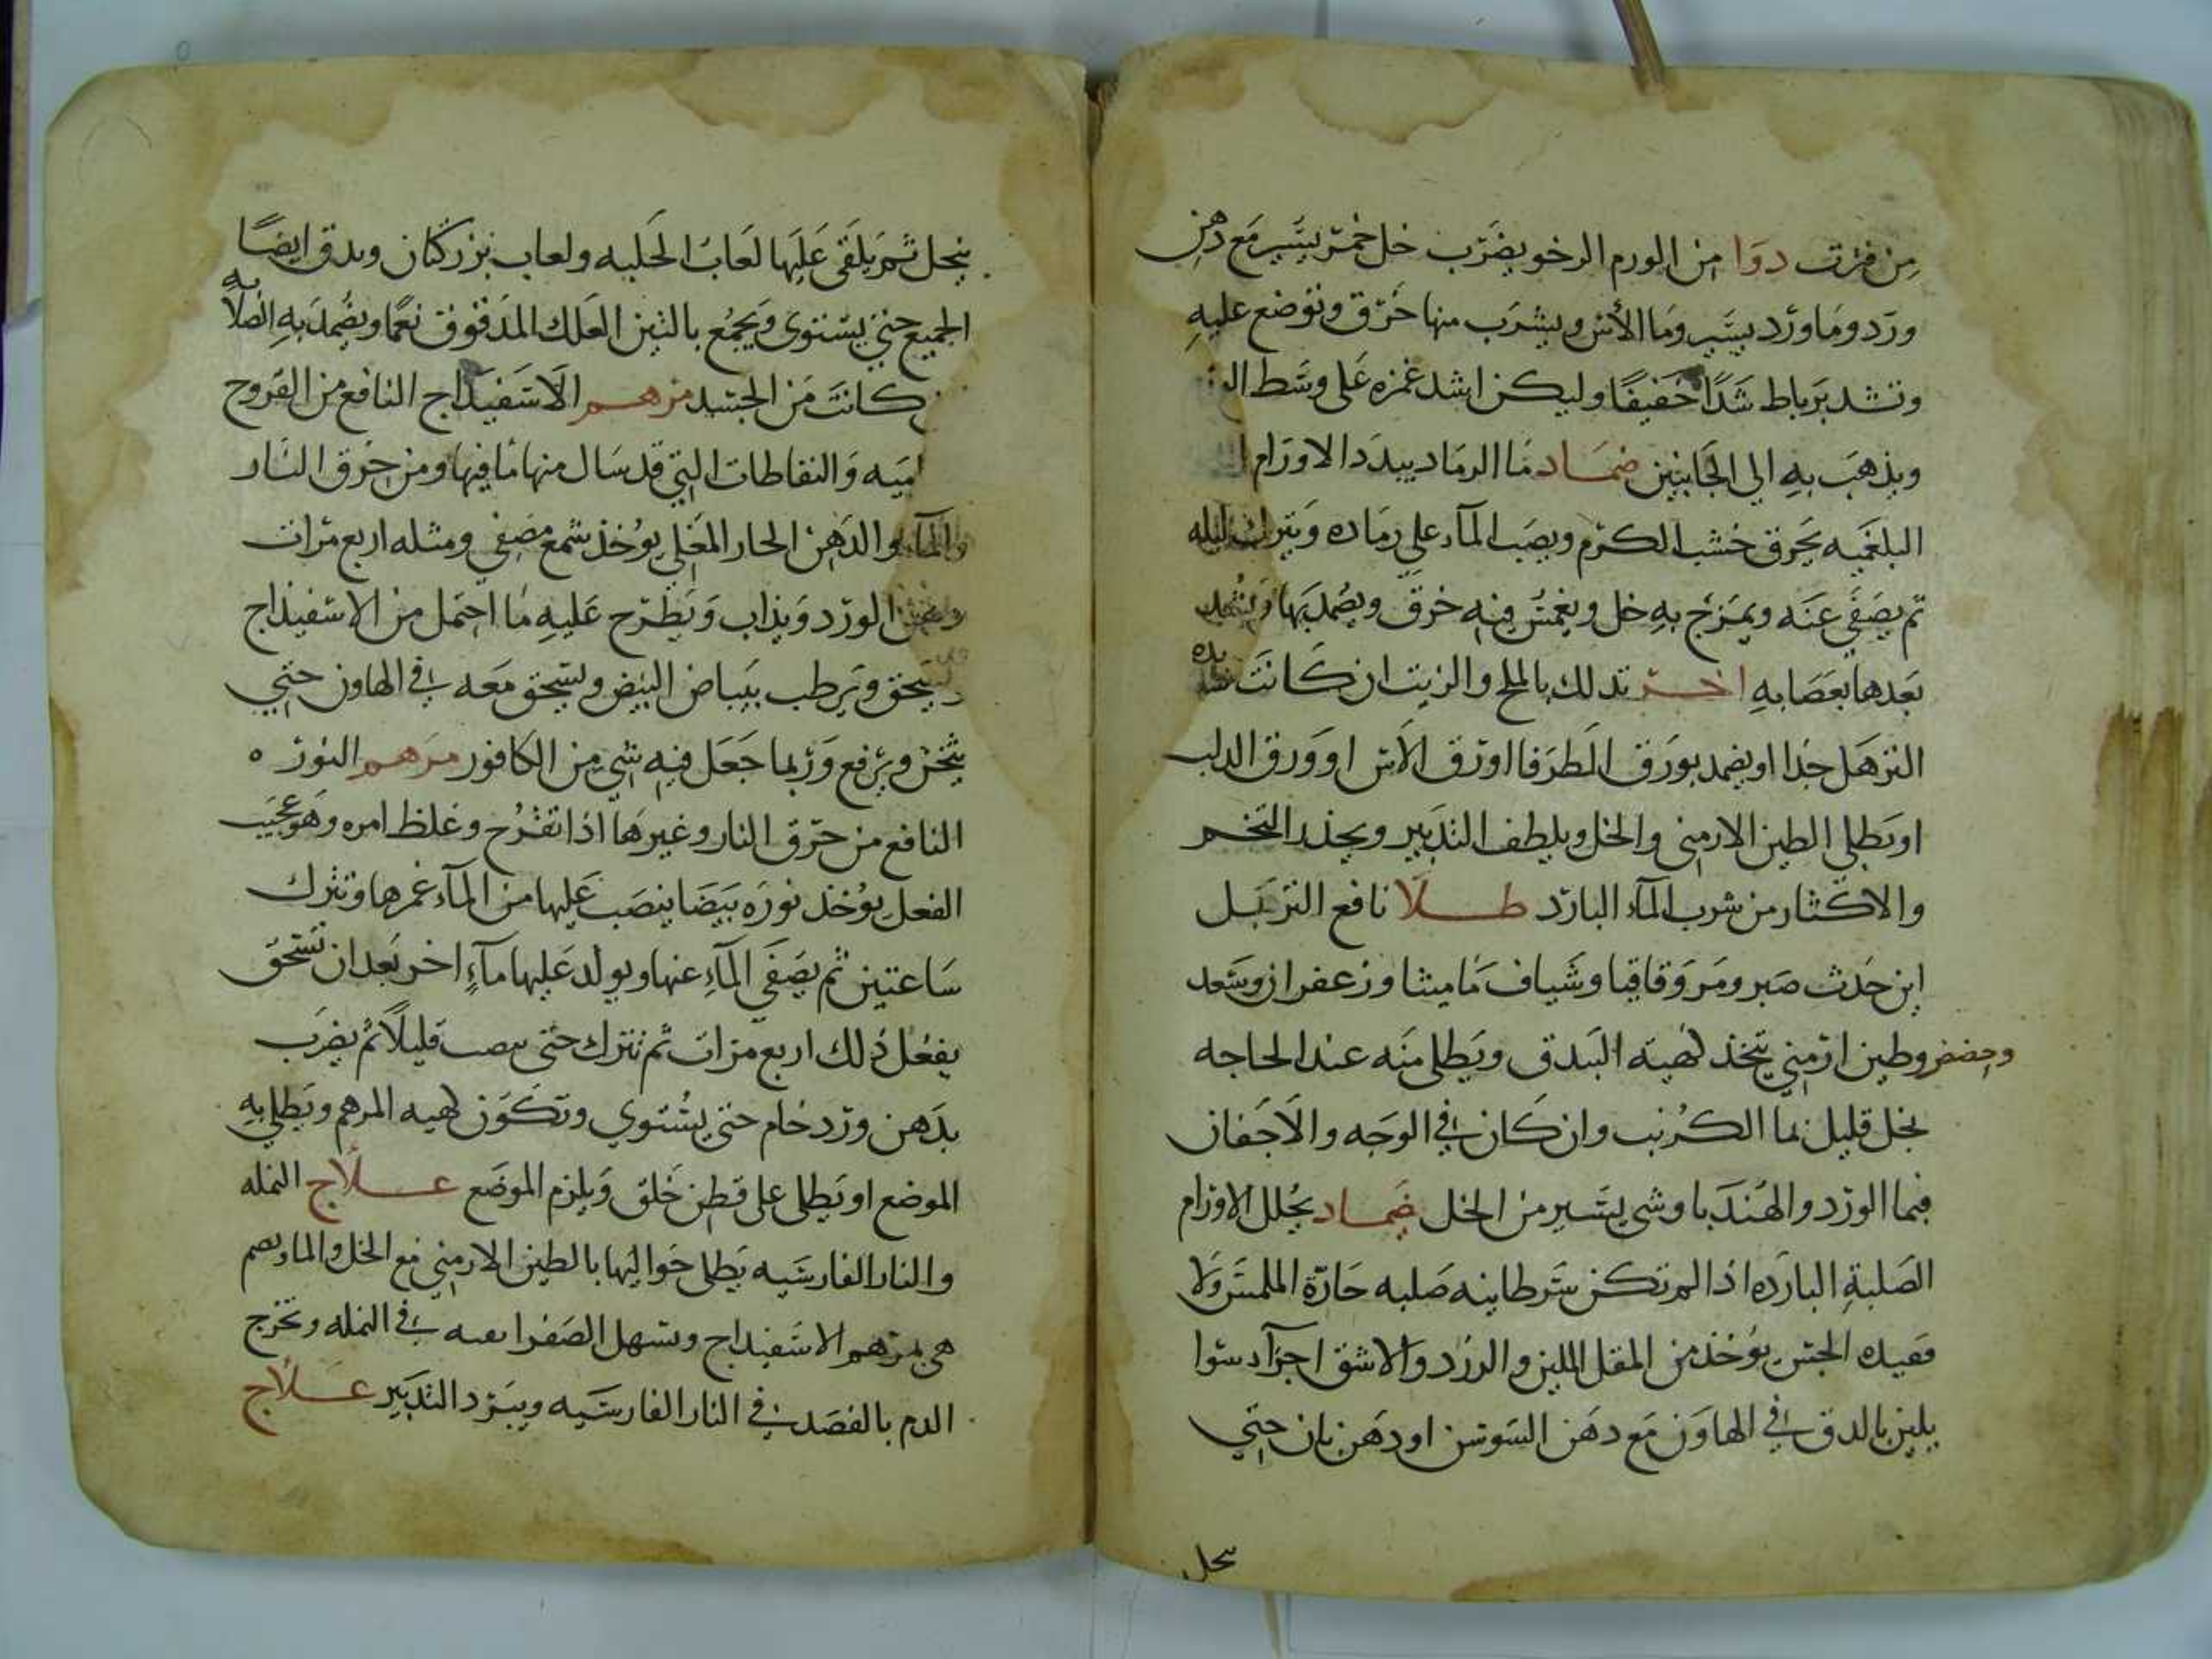 من فرت دوا من الورم الرخو يضرب خل خمر يسير مع دهن
ورد وما ورد يسير وما الآس ويشرب منها خرق وتوضع عليه
وتشد برباط شدا خفيفا وليكن اشد غمزه على وسط
ويذهب به الى الجانبين ضماد ما الرماد يبدد الاورام
البلغميه يحرق خشب الكرم ويصب الماء على رماده ويترك ليله
ثم يصفى عنه ويمزج به خل ويغمس فيه خرق ويضمد بها
بعدها بعصابه اخر تدلك بالملح والزيت ان كانت
الترهل جدا او يضمد بورق الطرفا او ورق الآس او ورق الدلب
او يطلى الطين الارمنى والخل ويلطف التدبير ويحذر التخم
والاكثار من شرب الماء البارد طلا نافع التربل
اين حدث صبر ومر وقاقيا وشياف ماميثا وزعفران وسعد
وحضض وطين ارمنى يتخذ كهيه البندق ويطلى منه عند الحاجه
بخل قليل بما الكرنب وان كان في الوجه والاجفان
فبما الورد والهندبا وشى يسير من الخل ضماد يحلل الاورام
الصلبة البارده اذا لم تكن سرطانيه صلبه حارة الملمس ولا
فقيده الحس يوخذ من المقل اللين والاشق اجزآء سوا
يلين بالدق في الهاون مع دهن السوسن او دهن بان حتى
سحل
ينحل ثم يلقى عليها لعاب الحلبه ولعاب بزر كتان ويدق ايضا
الجميع حتى يستوى ويجمع بالتين العلك المدقوق نعما ويضمد به الصلا به
كانت من الجسد مرهم الاسفيداج النافع من القروح
والنفاطات التي قد سال منها ما فيها ومن حرق النار
والماء والدهن الحار المغلى يوخذ شمع مصفى ومثله اربع مرات
دهن الورد ويذاب ويطرح عليه ما احتمل من الاسفيداج
يسحق ويرطب ببياض البيض ويسحق معه في الهاون حتى
يثخن ويرفع وربما جعل فيه شي من الكافور مرهم النوره
النافع من حرق النار وغيرها اذا تقرح وغلظ امره وهو عجيب
الفعل يوخذ نوره بيضا يصب عليها من الماء غمرها وتترك
ساعتين ثم يصفى الماء عنها ويولد عليها مآء اخر بعد ان تسحق
يفعل ذلك اربع مرات ثم تترك حتى قليلا ثم يضرب
بدهن ورد خام حتى يستوي وتكون كهيه المرهم ويطلى به
الموضع او يطلى على قطن خلق ويلزم الموضع علاج النمله
والنار الفارسيه يطلى حواليها بالطين الارمنى مع الخل والماء
هى بمرهم الاسفيداج ويسهل الصفرا في النمله وتخرج
الدم بالفصد في النار الفارسيه ويبرد التدبير علاج